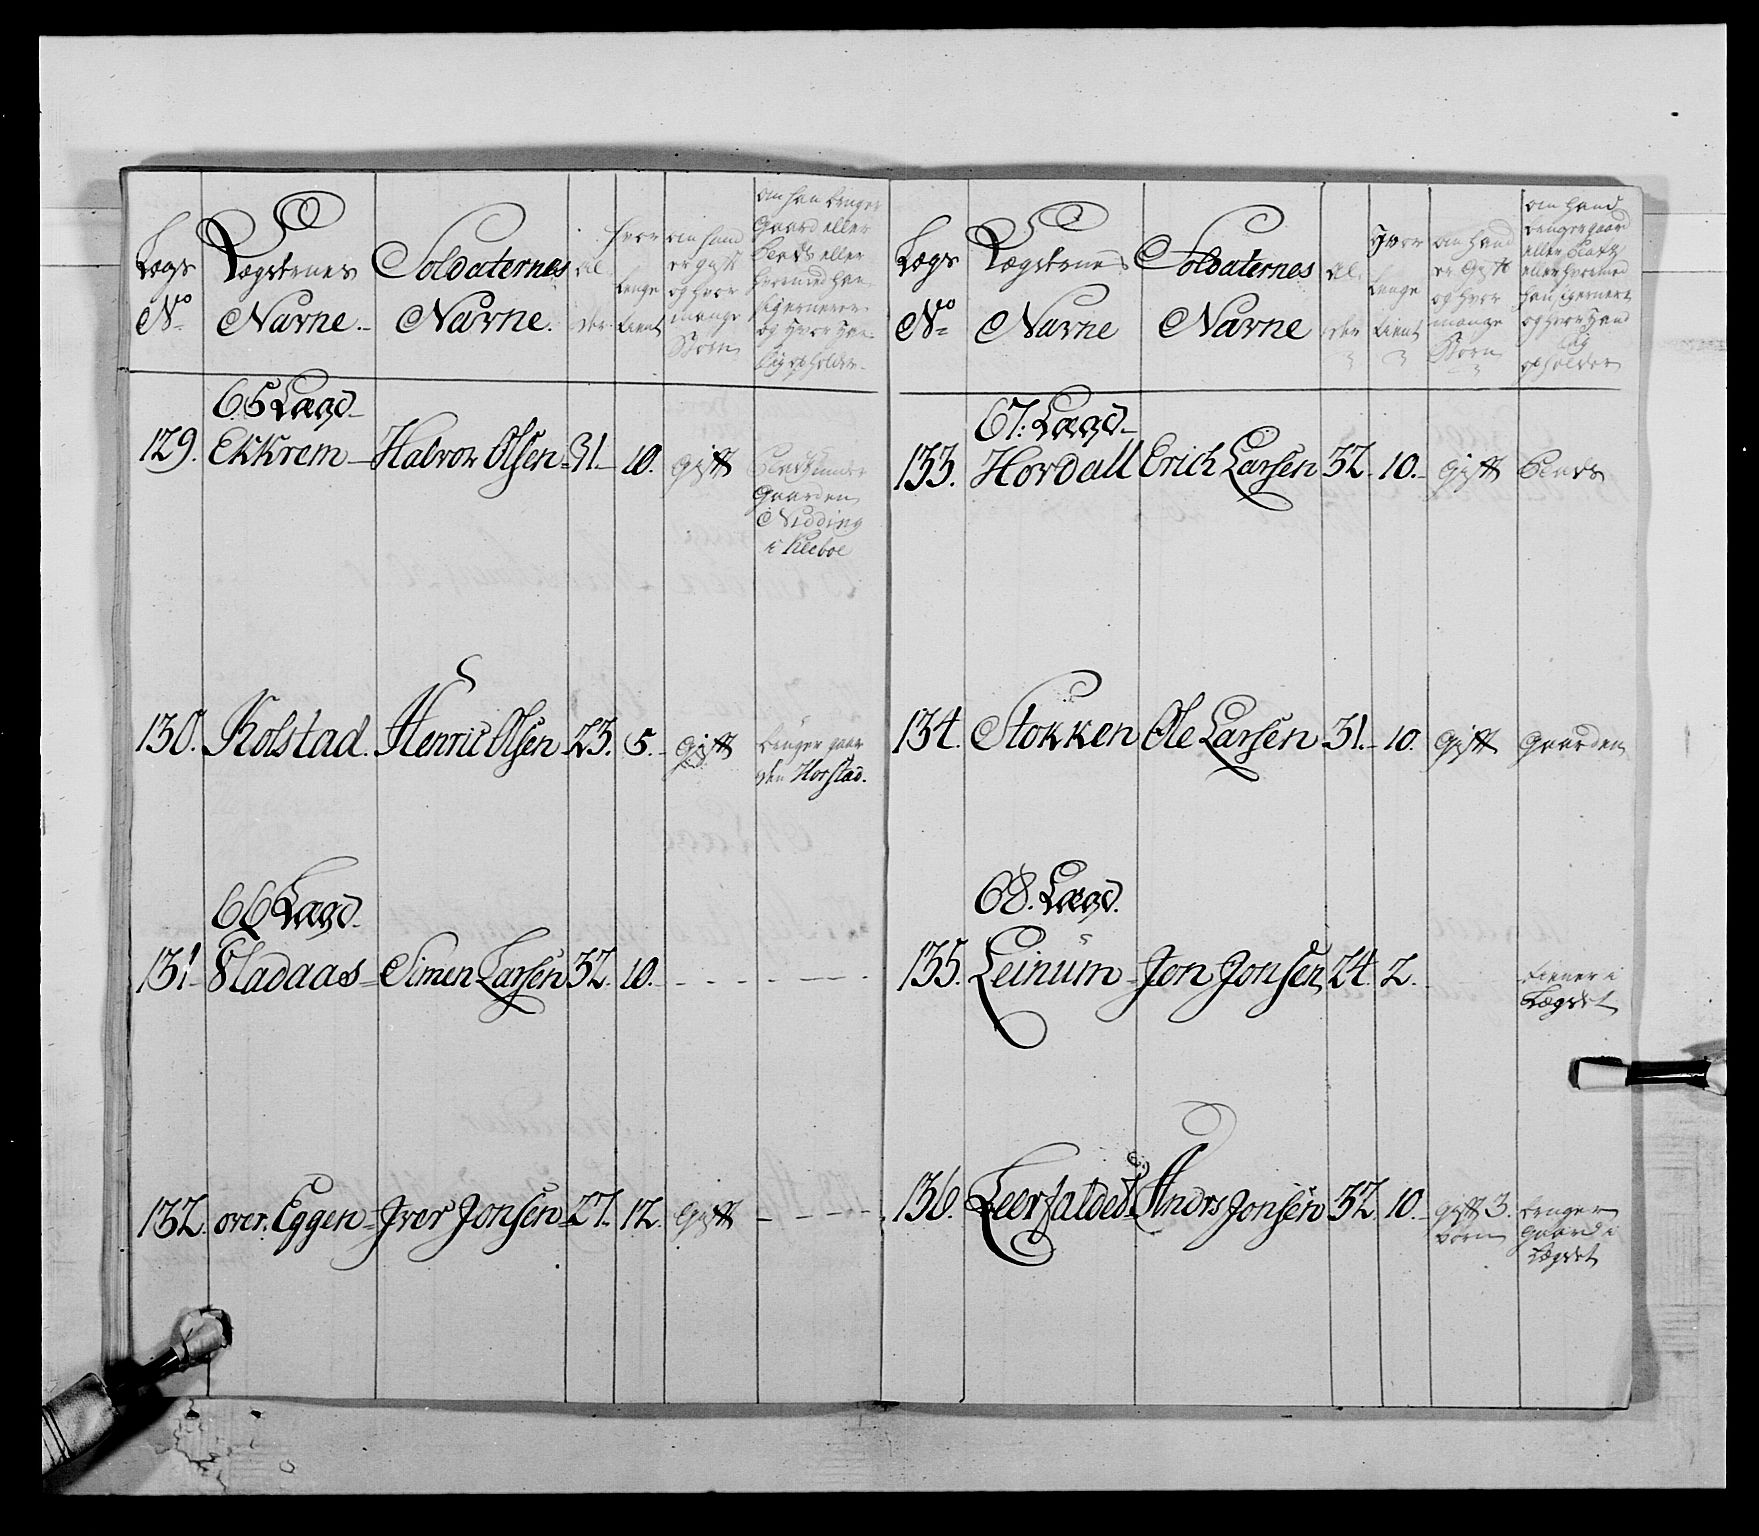 Lægs
No
Lægdernes
Navne.
Soldaternes
Navne.
Al
der
Hvor
lenge
tient
om hand
er gift
og hvor
mange
Børn
om han bruger
Gaard eller
Plads eller
hvormed han
sig ernærer
og hvor han
sig opholder
65 Lægd
129. Ekkrem Halvor Olsen 31. 10. gift Plads under
Gaarden
Nidding
i Kleboe
130. Kolstad. Henric Olsen 23. 5. gift bruger gaar
den Horstad.
66 Lægd.
131 Fladaas Simen Larsen 32. 10.
132. over. Eggen Iver Jonsen 27. 12. gift
Lægs
No
Lægdernes
Navne
Soldaternes
Navne
Al
der
Hvor
lenge
tient
om hand
er gift
og hvor
mange
Børn
om hand
bruger gaard
eller Plads
eller hvormed
han sig ernerer
og hvor hand
sig
opholder
67. Lægd
133. Hordall Erich Larsen 32. 10. gift Plads
134. Stokken Ole Larsen 31. 10. gift Gaarden
68. Lægd.
135. Leinum Jon Jonsen 24. 2. tiener i
Lægdet
136. Leerfalded Andrs Jonsen 32. 10. gift 3. bruger
børn gaard i
Lægdet